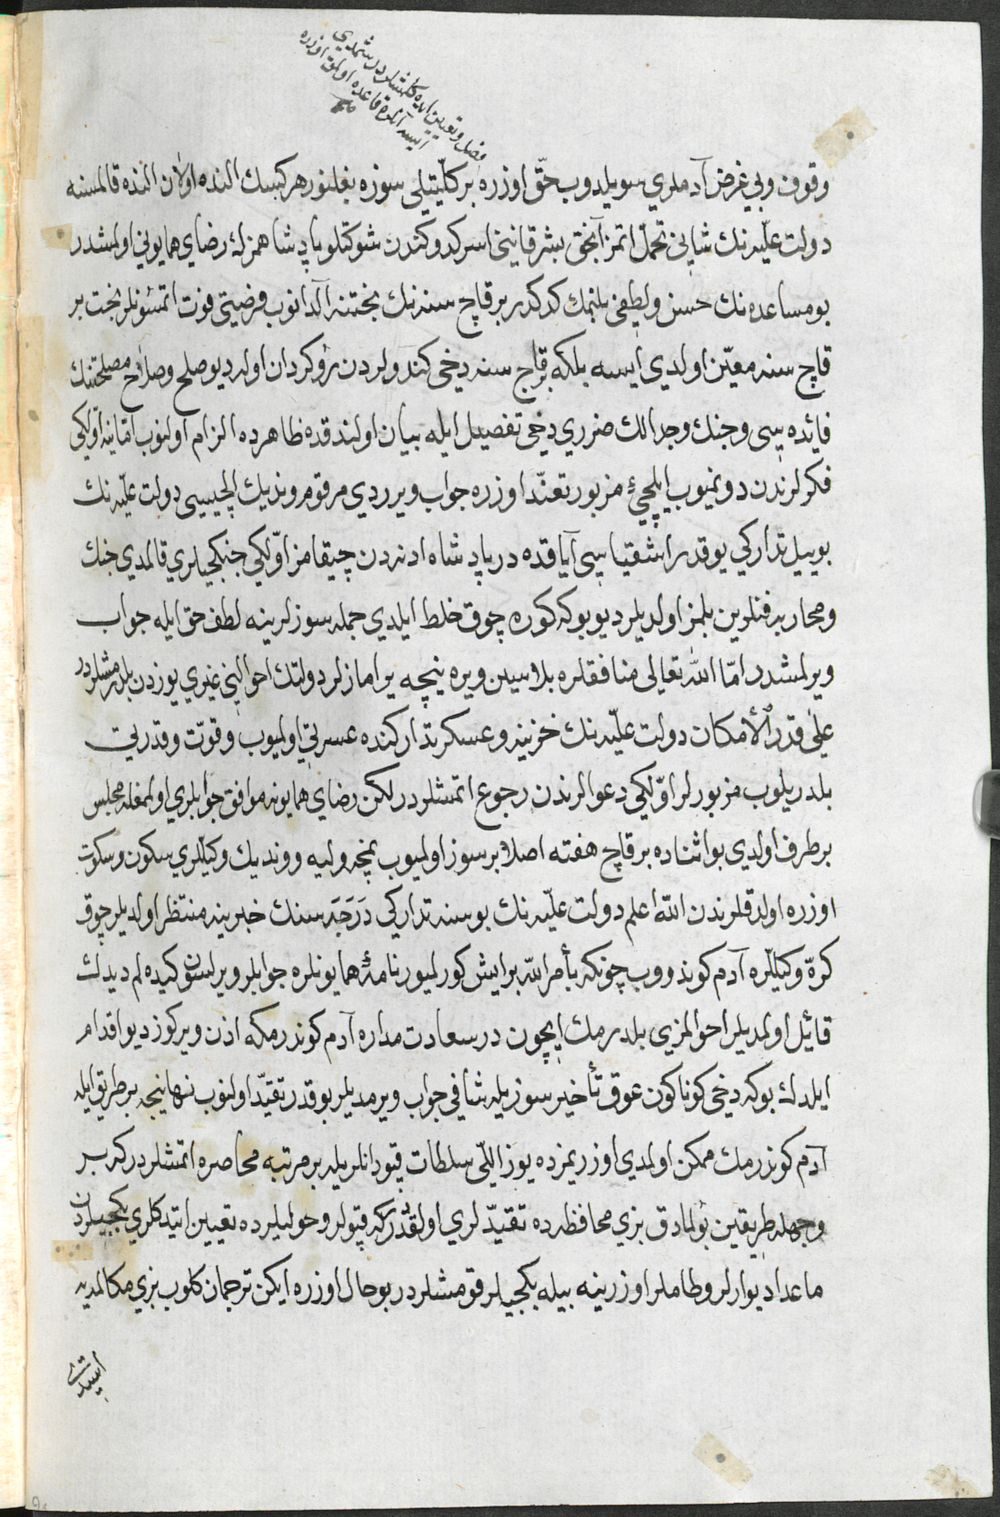 فصل وتعيين ايده كلمشلردر شمدي
ايسه آنلره قاعده اولمق اوزره
صح
وقوف وبي غرض آدملري سويلدوب حقّ اوزره بر كلّيتيلى سوزه بغلنور هر كسك النده اولان النده قالمسنه
دولت عليّه نك شاني تحمّل اتمز آنجق بشر قانيني اسركدوكندن شوكتلو پادشاهمزك رضاي همايوني اولمشدر
بو مساعده نك حسن ولطفني بلنمك كركدر بر قاچ سنه نك بختنه آلدانوب فرصتي فوت اتمسونلر بخت بر
قاچ سنه معيّن اولدي ايسه بلكه بر قاچ سنه دخي كندولردن روكردان اولر ديو صلح وصلاح مصلحتنك
فائده سي وجنك وجدالك ضرري دخي تفصيل ايله بيان اولندقده ظاهرده الزام اولنوب امّا ينه اوّلكي
فكرلرندن دونميوب ايلچيء مزبور تعنّد اوزره جواب ويردي مرقوم ونديك ايلچيسي دولت عليّه نك
بو ييل تداركي يوقدر اشقياسي آياقده در پادشاه ادرنه دن چيقامز اوّلكي جنكجيلري قالمدي جنك
ومحاربه فنلرين بلمز اولديلر ديو بوكه كوره چوق خلط ايلدي جمله سوزلرينه لطف حق ايله جواب
ويرلمشدر امّا اللّه تعالى منافقلره بلاسين ويره نيچه يرامازلر دولتك احوالني غيري يوزدن بلدرمشلردر
على قدر الأمكان دولت عليّه نك خزينه وعسكر تداركنده عسرتي اولميوب وقوّت وقدرتي
بلدريلوب مزبورلر اوّلكي دعوالرندن رجوع اتمشلردر لكن رضاي همايونه موافق جوابلري اولمغله مجلس
بر طرف اولدي بو اثناده بر قاچ هفته اصلا بر سوز اولميوب نمچه وليه وونديك وكيللري سكون وسكوت
اوزره اولدقلرندن اللّه اعلم دولت عليّه نك بو سنه تداركي دَرَجَه سنك خبرينه منتظر اولديلر چوق
كرّه وكيللره آدم كوندروب چونكه بأمر اللّه بر ايش كورلميور نامهء همايونلره جوابلر ويرلسون كيده لم ديدك
قائل اولمديلر احوالمزي بلدرمك ايچون در سعادت مداره آدم كوندرمكه اذن ويركوز ديو اقدام
ايلدك بوكه دخي كوناكون عوق تأخير سوزيله شافي جواب ويرمديلر بو قدر تقيّد اولنوب نهايت بر طريق ايله
آدم كوندرمك ممكن اولمدي اوزريمزده يوز اللّي سلطات قپودانلريله بر مرتبه محاصره اتمشلردر كه بر
وجهله طريقين بولمادق بزي محافظه ده تقيّدلري اولقدر كه قپولر وحوليلرده تعيين ايتدكلري بكجيلردن
ماعدا ديوارلر وطاملر اوزرينه بيله بكجيلر قومشلردر بو حال اوزره ايكن ترجمان كلوب بزي مكالمه يه